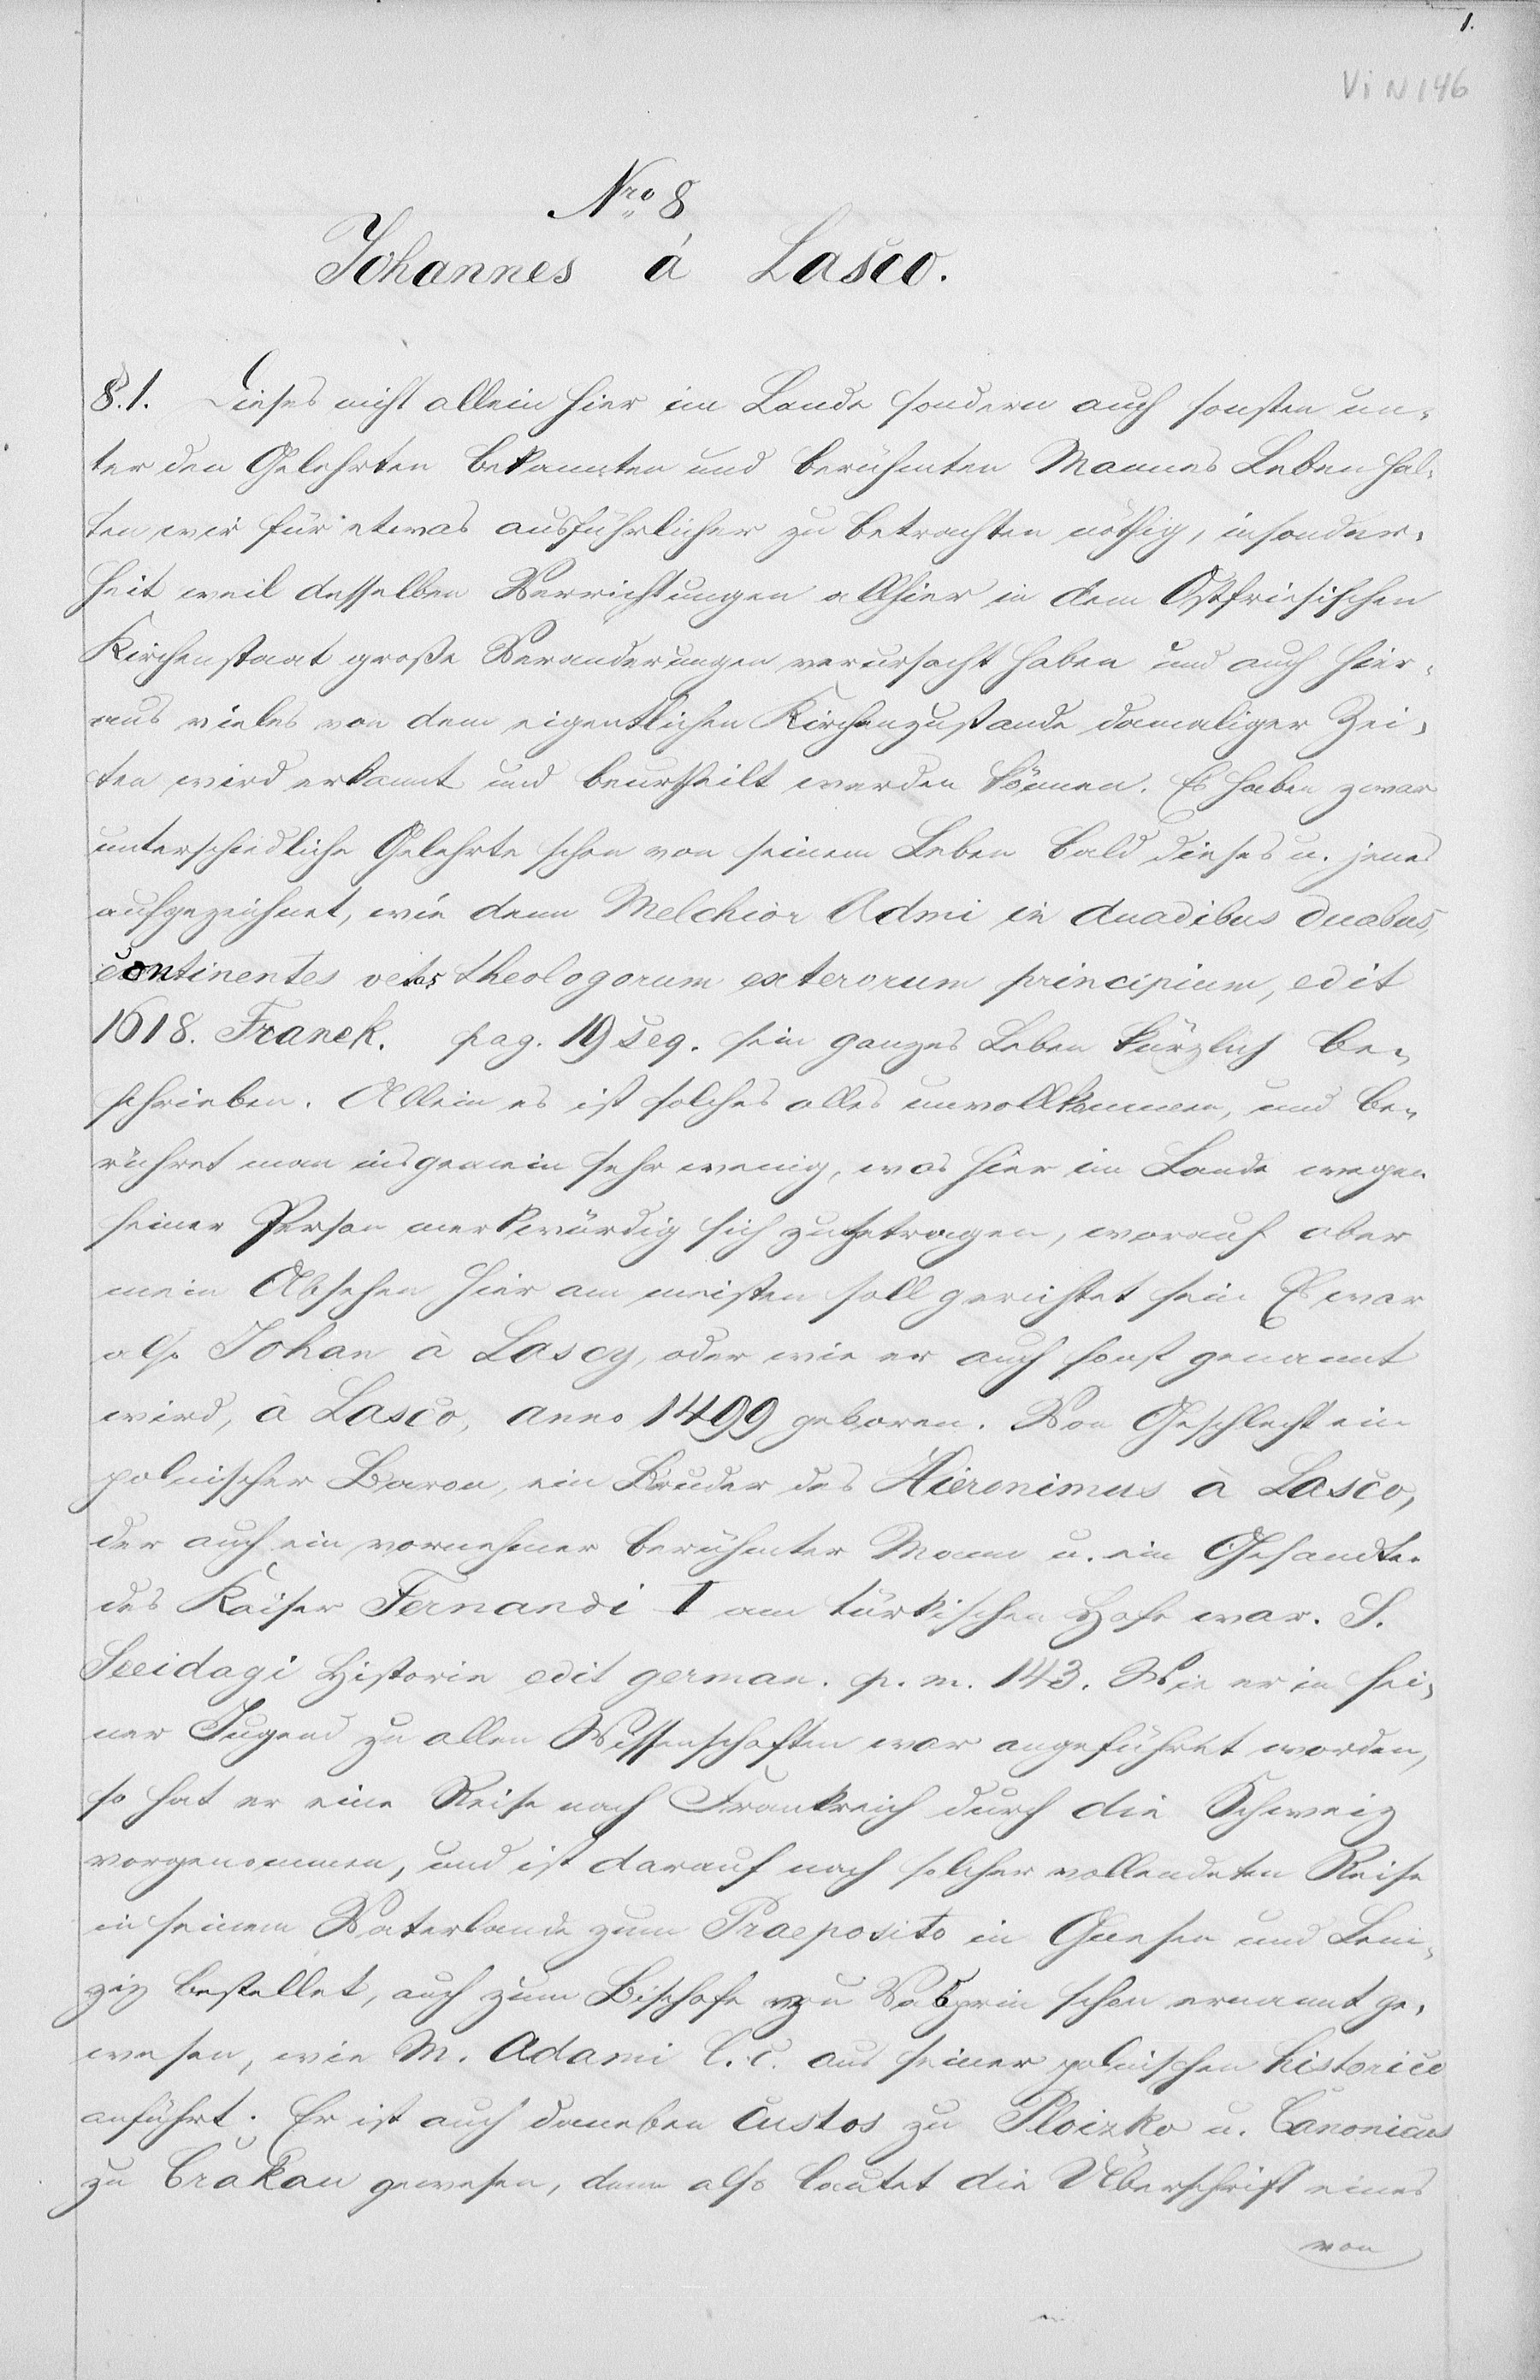 1.
Vi N 146
Nro 8
Johannes á Lasco.
§.1. Dieses nicht allein hier im Lande sondern auch sonsten un-
ter den Gelehrten bekannten und berühmten Mannes Leben hal-
ten wir für etwas ausführlicher zu betrachten nöthig, insonder-
heit weil desselben Verrichtungen allhier in dem Ostfriesischen
Kirchenstaat große Veranderungen verursacht haben und auch hier-
aus vieles von dem eigentlichen Kirchenzustande damaliger Zei-
ten wird erkannt und beurtheilt werden können. Es haben zwar
unterschiedliche Gelehrte schon von seinem Leben bald dieses u. jenes
aufgezeichnet, wie denn Melchior Admi in duadibus duabus,
continentes vetas theologorum exterorum principium, edit
1618. Franck. pag. 19 seq. sein ganzes Leben kürzlich be-
schrieben. Allein es ist solches alles unvollkommen, und be-
rühret man insgemein sehr wenig, was hier im Lande wegen
seiner Person merkwürdig sich zugetragen, worauf aber
mein Absehen hier am meisten soll gerichtet sein Es war
also Johan à Lascy, oder wie er auch sonst genannt
wird, à Lasco, anno 1499 geboren. Von Geschlecht ein
polnischer Baron, ein Bruder des Hieronimus à Lasco,
der auch ein vornehmer berühmter Mann u. ein Gesandter
des Kaiser Fernandi I am türkischen Hofe war. S.
Sleidagi Historie edit german. p. m. 143. Wie er in sei-
ner Jugend zu allen Wissenschaften war angeführet worden,
so hat er eine Reise nach Frankreich durch die Schweiz
vorgenommen, und ist darauf nach solcher vollendeten Reise
in seinem Vaterlande zum Praeposito in Gnesen und Leni-
ziz bestellet, auch zum Bischofe zu Vesprin schon ernannt ge-
wesen, wie M. Adami l. c. aus seiner polnischen historice
anführt. Er ist auch daneben Custos zu Ploizko u. Canonicus
zu Crakau gewesen, denn also lautet die Überschrift eines
von